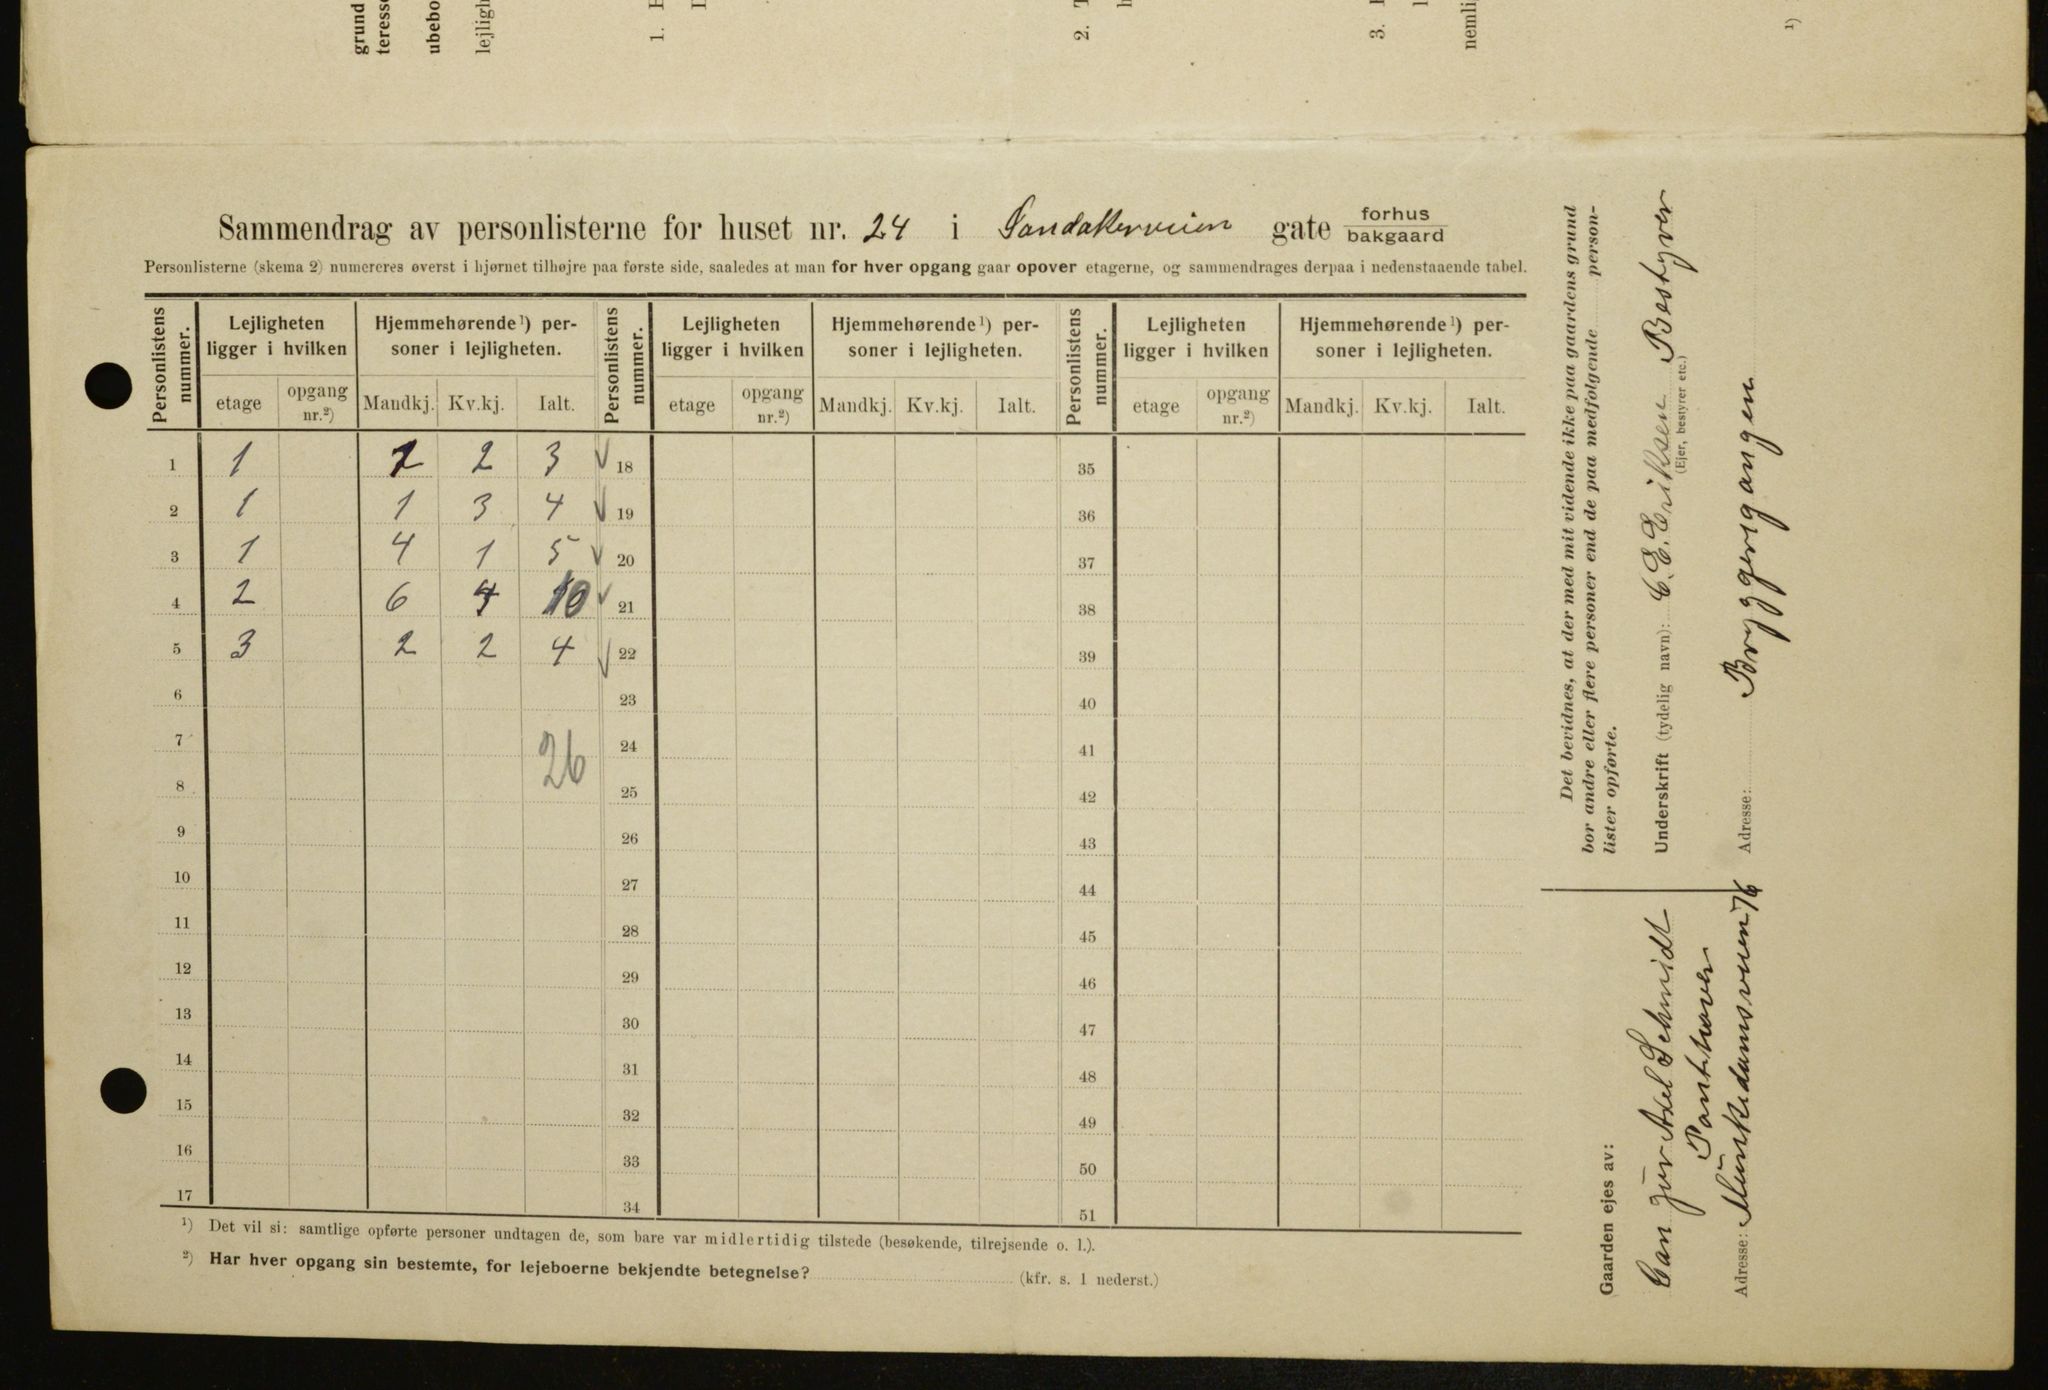 grund
teresse
ubebo
lejligh
1.
2.
3.
nemlig
1)
Sammendrag av personlisterne for huset nr. 24 i Sandakerveien gate forhus
bakgaard
Personlisterne (skema 2) numereres øverst i hjørnet tilhøjre paa første side, saaledes at man for hver opgang gaar opover etagerne, og sammendrages derpaa i nedenstaaende tabel.
Personlistens nummer. Lejligheten ligger i hvilken Hjemmehørende¹) personer i lejligheten. Personlistens nummer. Lejligheten ligger i hvilken Hjemmehørende¹) personer i lejligheten. Personlistens nummer. Lejligheten ligger i hvilken Hjemmehørende¹) personer i lejligheten.
etage opgang nr.²) Mandkj. Kv.kj. Ialt. etage opgang nr.²) Mandkj. Kv.kj. Ialt. etage opgang nr.²) Mandkj. Kv.kj. Ialt.
1 1 1 2 3 18 35
2 1 1 3 4 19 36
3 1 4 1 5 20 37
4 2 6 4 10 21 38
5 3 2 2 4 22 39
6 23 40
7 26 24 41
8 25 42
9 26 43
10 27 44
11 28 45
12 29 46
13 30 47
14 31 48
15 32 49
16 33 50
17 34 51
¹) Det vil si: samtlige opførte personer undtagen de, som bare var midlertidig tilstede (besøkende, tilrejsende o. l.).
²) Har hver opgang sin bestemte, for lejeboerne bekjendte betegnelse? (kfr. s. 1 nederst.)
Det bevidnes, at der med mit vidende ikke paa gaardens grund
bor andre eller flere personer end de paa medfølgende person-
lister opførte.
Underskrift (tydelig navn): C. E. Eriksen Bestyrer
(Ejer, bestyrer etc.)
Adresse: Bryggerigangen
Gaarden ejes av:
Axel Schmidt
Adresse: Munkedamsveien 76